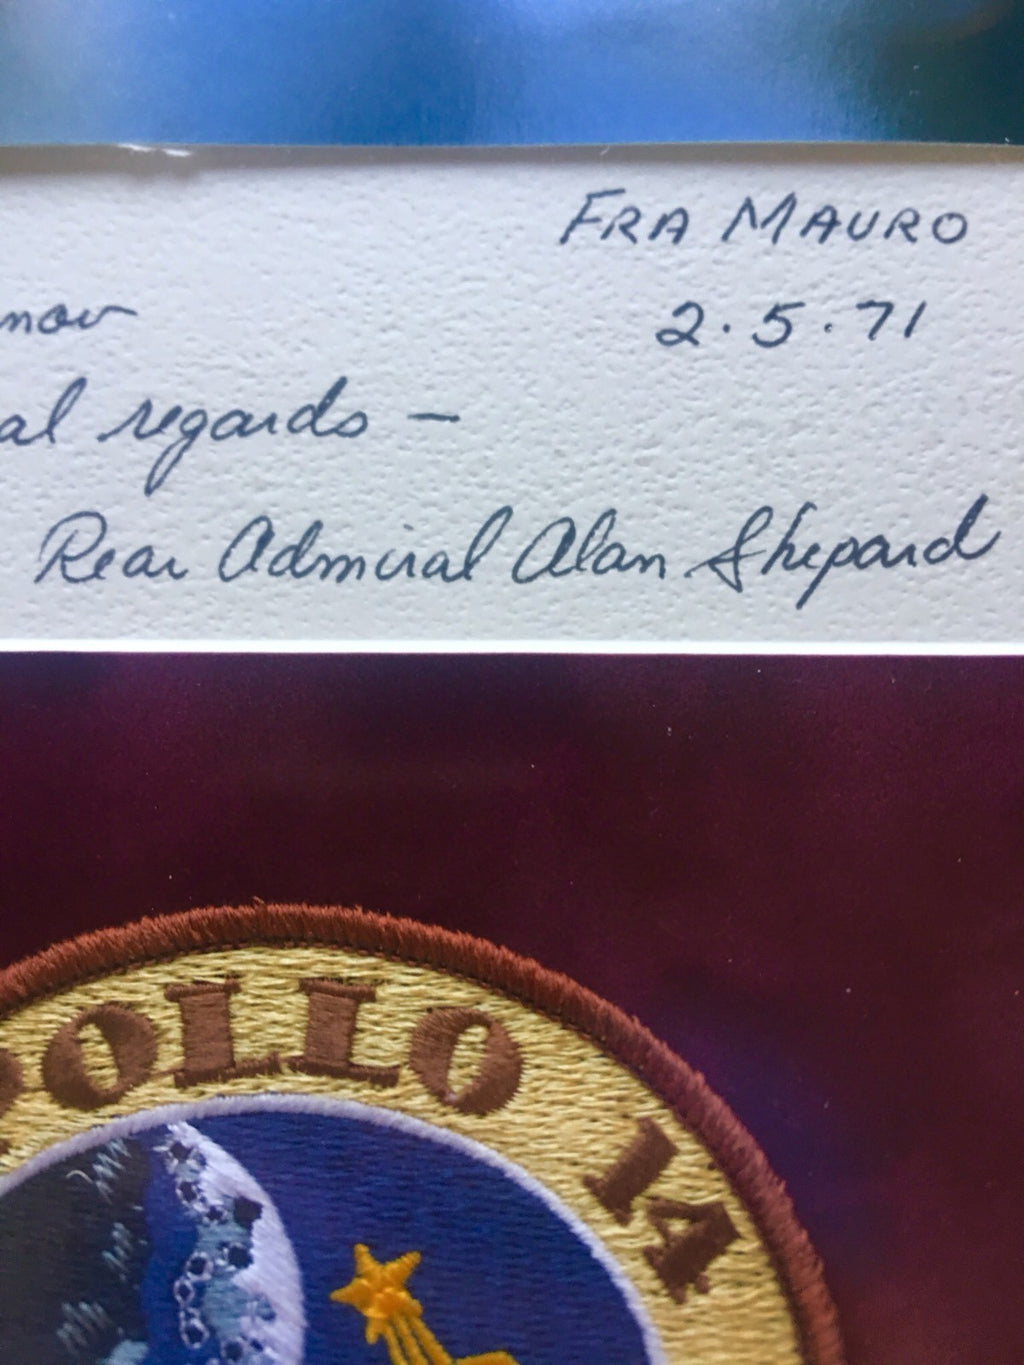 FRA MAURO
2.5.71
al regards —
Rear Admiral Alan Shepard
OLLO 14